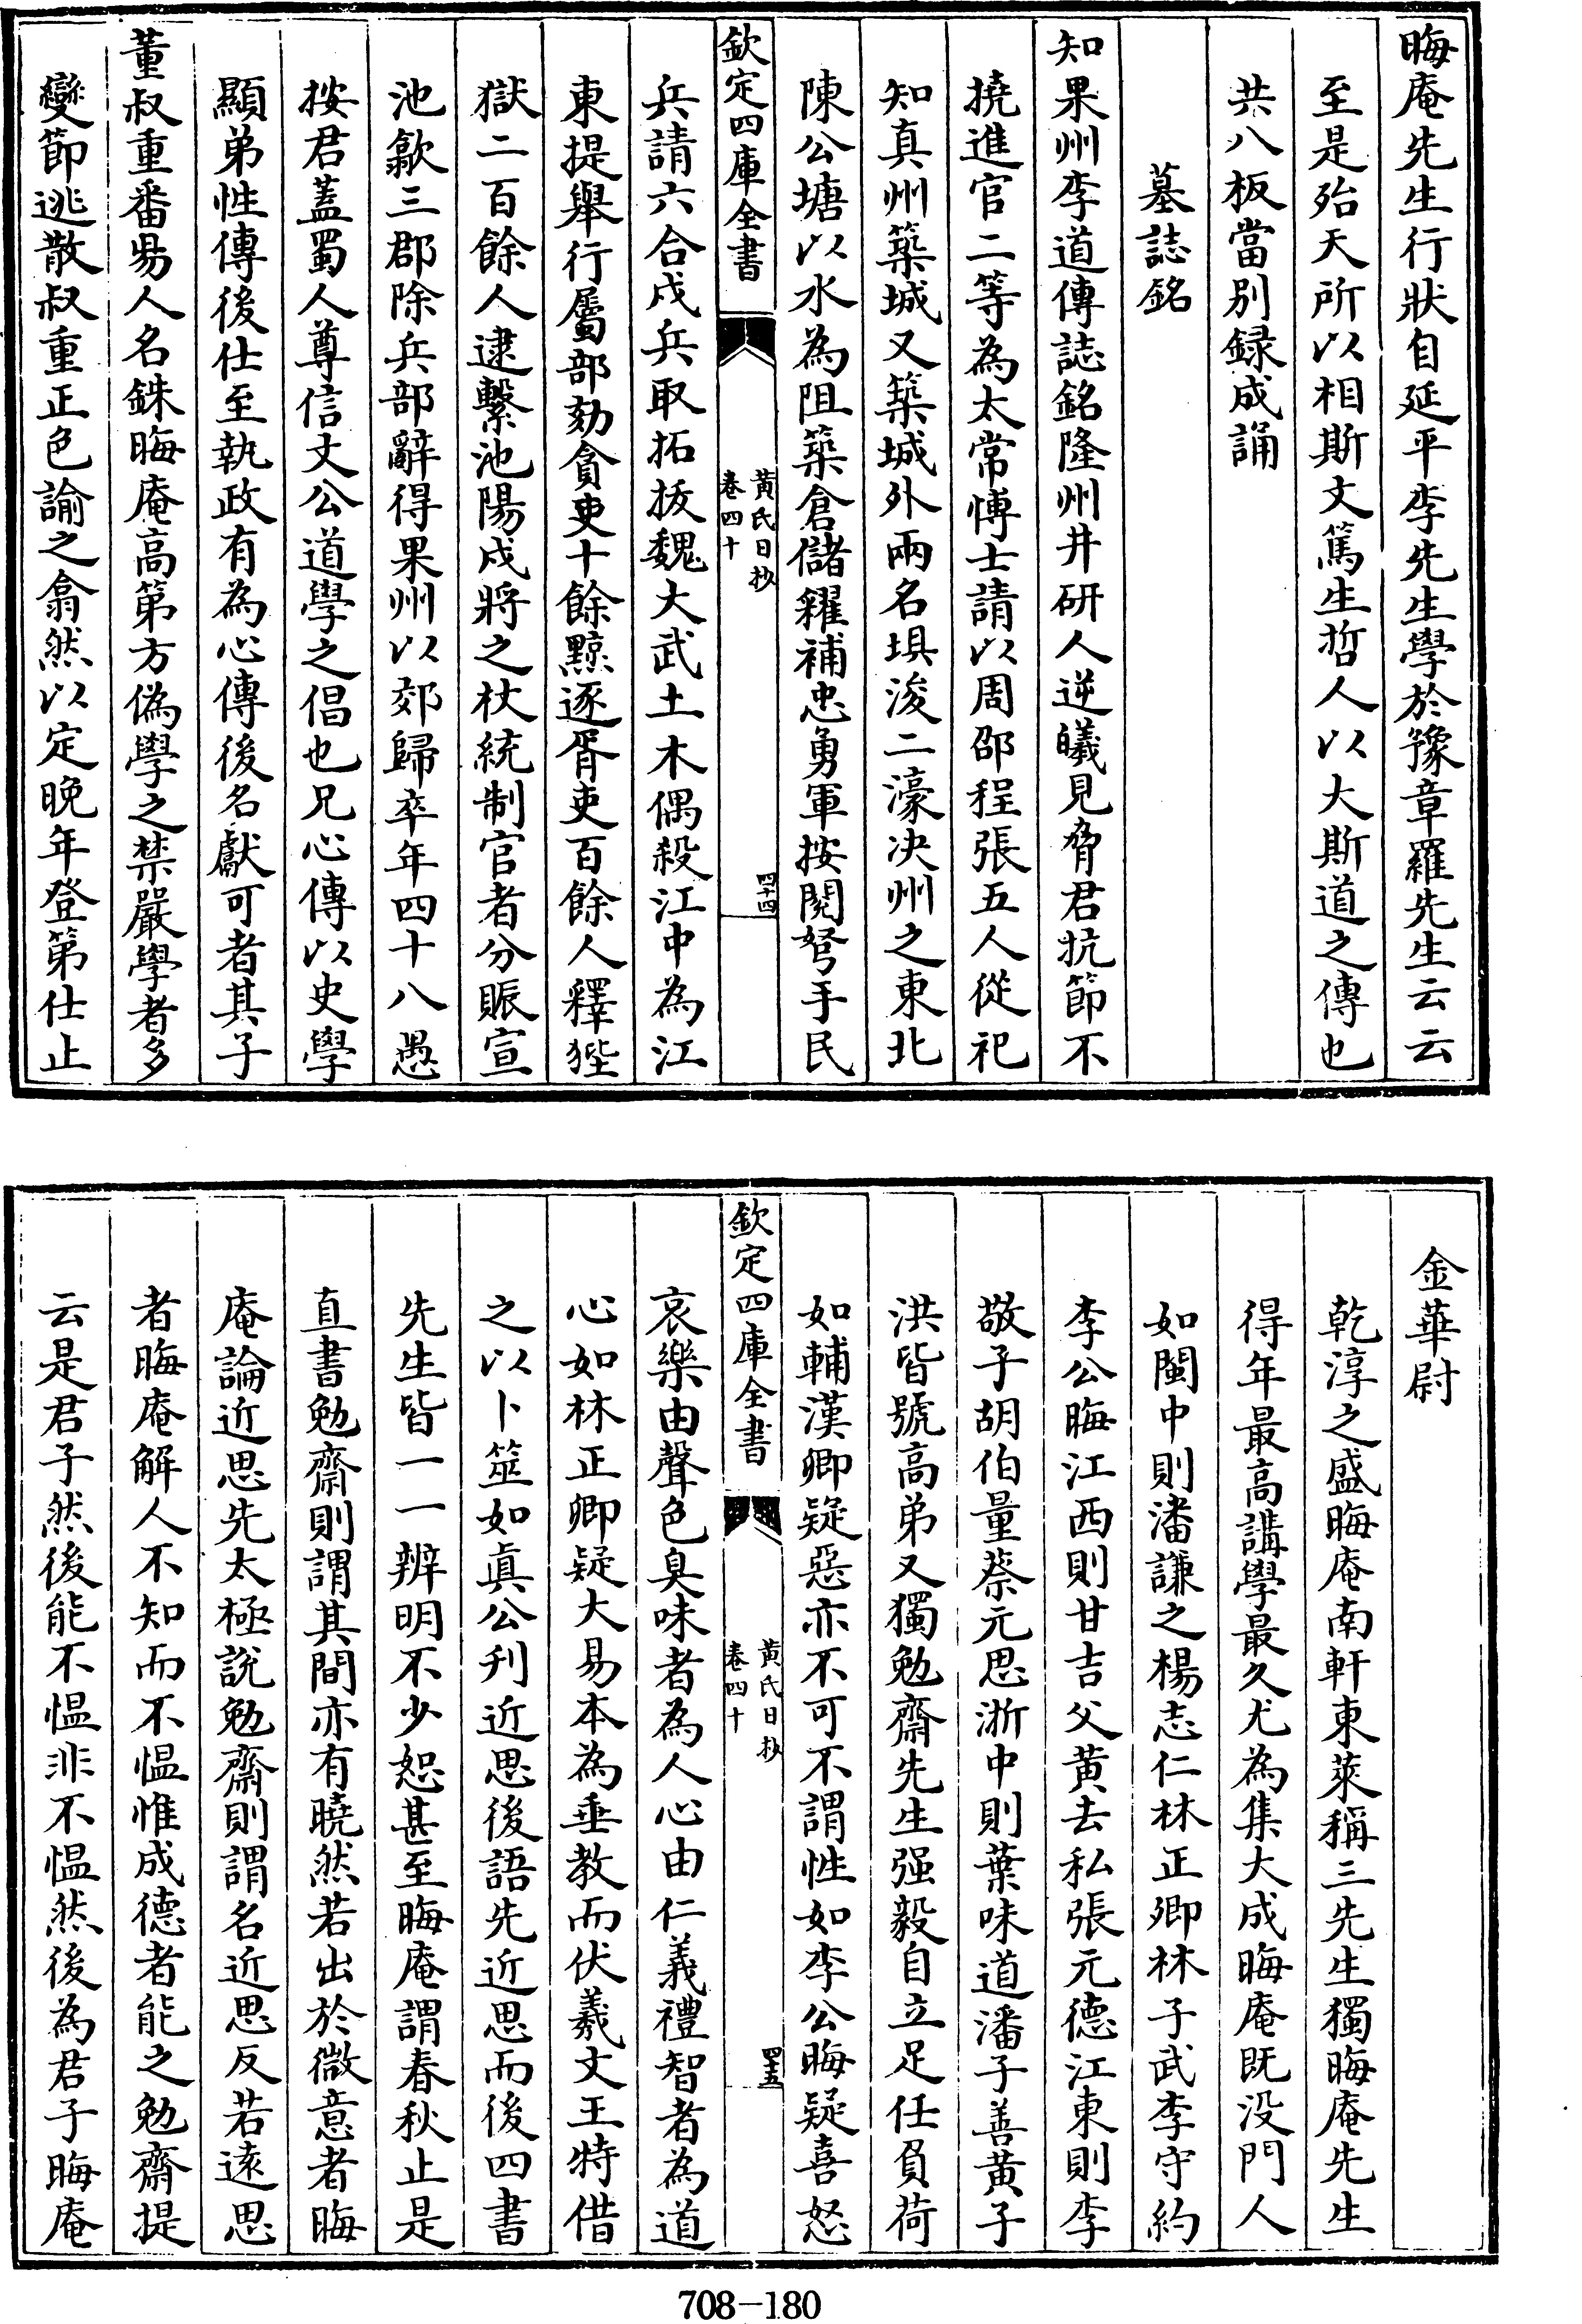 晦庵先生行狀自延平李先生學於豫章羅先生云云
至是殆天所以相斯文篤生哲人以大斯道之傳也
共八板當別録成誦
墓誌銘
知果州李道傳誌銘隆州井研人逆曦見脅君抗節不
撓進官二等為太常博士請以周邵程張五人從祀
知真州築城又築城外兩名垻浚二濠决州之東北
陳公塘以水為阻築倉儲糴補忠勇軍按閱弩手民
欽定四庫全書
黄氏日抄
卷四十
四十四
兵請六合戍兵取拓拔魏大武土木偶殺江中為江
東提舉行屬部劾貪吏十餘黥逐胥吏百餘人釋狴
獄二百餘人逮繫池陽戍將之杖統制官者分賑宣
池歙三郡除兵部辭得果州以郊歸卒年四十八愚
按君蓋蜀人尊信文公道學之倡也兄心傳以史學
顯弟性傳後仕至執政有為心傳後名獻可者其子
董叔重番昜人名銖晦庵高第方偽學之禁嚴學者多
變節逃散叔重正色諭之翕然以定晚年登第仕止
金華尉
乾淳之盛晦庵南軒東萊稱三先生獨晦庵先生
得年最高講學最久尤為集大成晦庵既没門人
如閩中則潘謙之楊志仁林正卿林子武李守約
李公晦江西則甘吉父黄去私張元德江東則李
敬子胡伯量蔡元思浙中則葉味道潘子善黄子
洪皆號高弟又獨勉齋先生强毅自立足任負荷
如輔漢卿疑惡亦不可不謂性如李公晦疑喜怒
欽定四庫全書
黄氏日抄
卷四十
四十五
哀樂由聲色臭味者為人心由仁義禮智者為道
心如林正卿疑大易本為垂教而伏羲文王特借
之以卜筮如真公刋近思後語先近思而後四書
先生皆一一辨明不少恕甚至晦庵謂春秋止是
直書勉齋則謂其間亦有曉然若出於微意者晦
庵論近思先太極說勉齋則謂名近思反若逺思
者晦庵解人不知而不愠惟成德者能之勉齋提
云是君子然後能不愠非不愠然後為君子晦庵
708-180